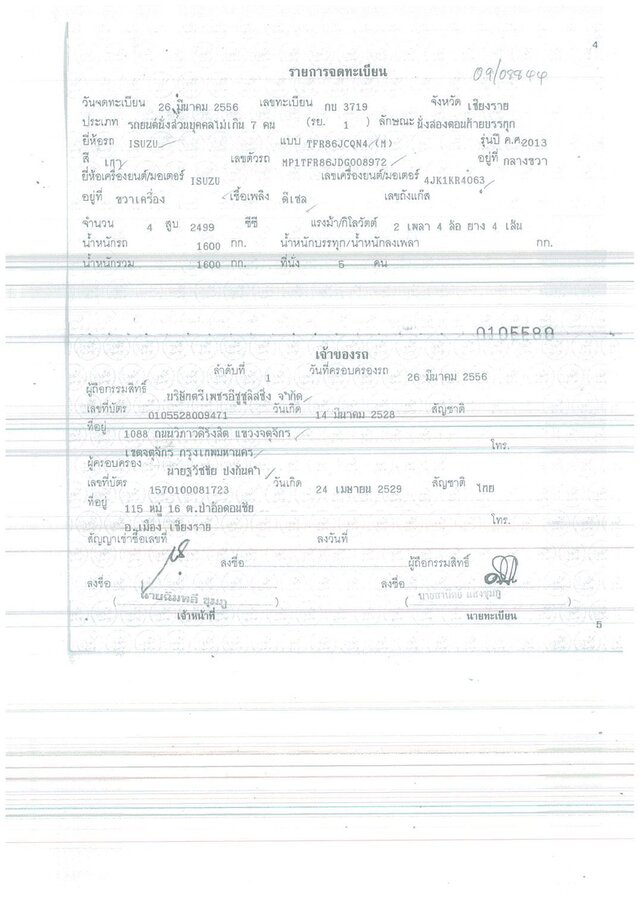 4
รายการจดทะเบียน 09/08844
วันจดทะเบียน 26 มีนาคม 2556 เลขทะเบียน กบ 3719 จังหวัด เชียงราย
ประเภท รถยนต์นั่งส่วนบุคคลไม่เกิน 7 คน (รย. 1 ) ลักษณะ นั่งสองตอนท้ายบรรทุก
ยี่ห้อรถ ISUZU แบบ TFR86JCQN4 (M) รุ่นปี ค.ศ. 2013
สี เทา เลขตัวรถ MP1TFR86JDG008972 อยู่ที่ กลางขวา
ยี่ห้อเครื่องยนต์/มอเตอร์ ISUZU เลขเครื่องยนต์/มอเตอร์ 4JK1KR4063
อยู่ที่ ขวาเครื่อง เชื้อเพลิง ดีเซล เลขถังแก๊ส
จำนวน 4 สูบ 2499 ซีซี แรงม้า/กิโลวัตต์ 2 เพลา 4 ล้อ ยาง 4 เส้น
น้ำหนักรถ 1600 กก. น้ำหนักบรรทุก/น้ำหนักลงเพลา กก.
น้ำหนักรวม 1600 กก. ที่นั่ง 5 คน
0105580
เจ้าของรถ
ลำดับที่ 1 วันที่ครอบครองรถ 26 มีนาคม 2556
ผู้ถือกรรมสิทธิ์ บริษัทตรีเพชรอีซูซุลิสซิ่ง จำกัด
เลขที่บัตร 0105528009471 วันเกิด 14 มีนาคม 2528 สัญชาติ
ที่อยู่ 1088 ถนนวิภาวดีรังสิต แขวงจตุจักร
เขตจตุจักร กรุงเทพมหานคร โทร.
ผู้ครอบครอง
เลขที่บัตร 1570100081723 วันเกิด 24 เมษายน 2529 สัญชาติ ไทย
ที่อยู่ 115 หมู่ 16 ต.ป่าอ้อดอนชัย
อ.เมือง เชียงราย โทร.
สัญญาเช่าซื้อเลขที่ ลงวันที่
ลงชื่อ ผู้ถือกรรมสิทธิ์
ลงชื่อ ลงชื่อ
( ) ( )
เจ้าหน้าที่ นายทะเบียน
5